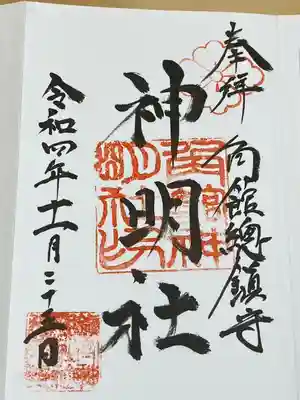 奉拝 角館總鎮守
神明社
令和四年十一月二十五日